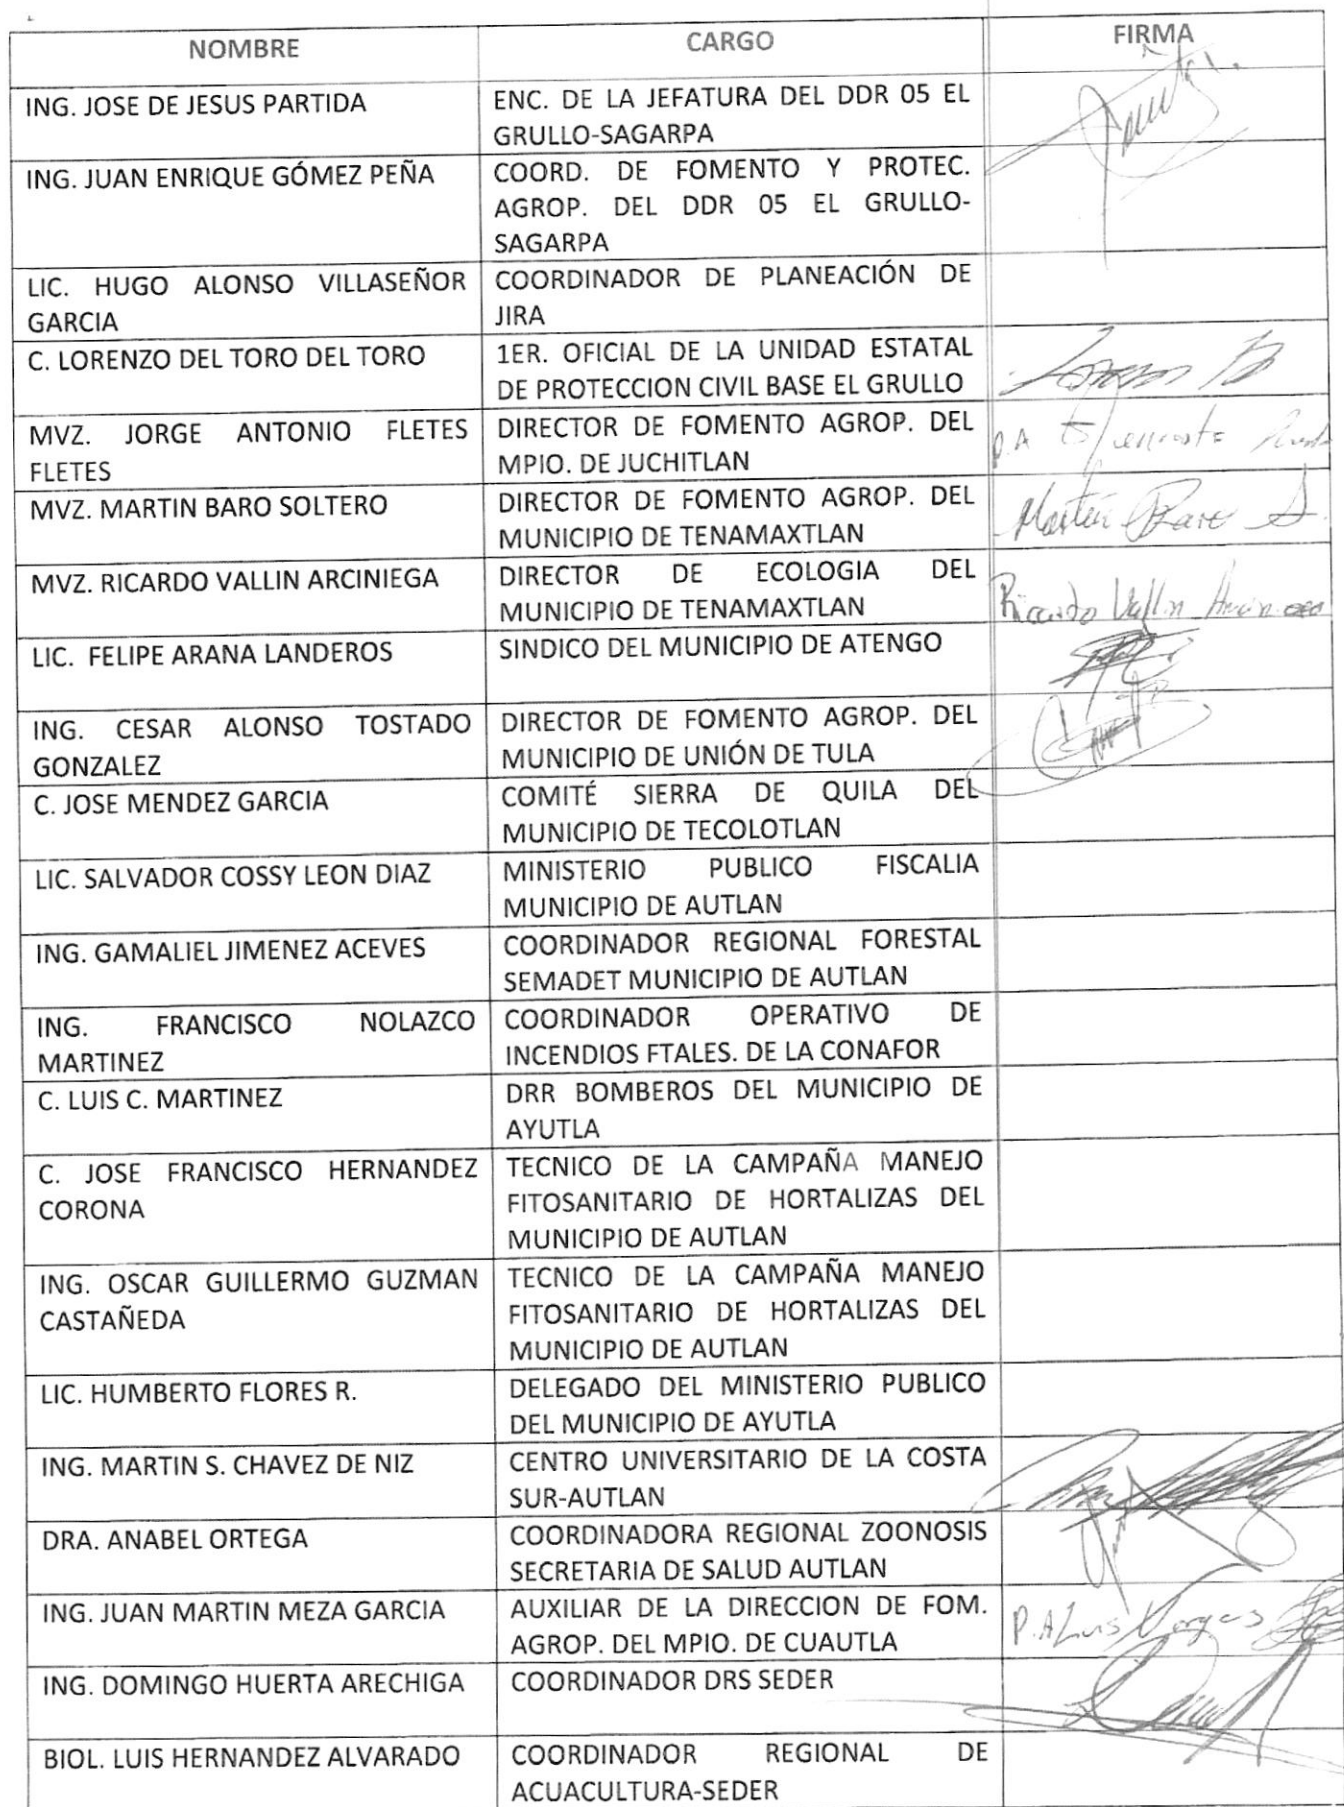 NOMBRE CARGO FIRMA
ING. JOSE DE JESUS PARTIDA ENC. DE LA JEFATURA DEL DDR 05 EL
GRULLO-SAGARPA
ING. JUAN ENRIQUE GÓMEZ PEÑA COORD. DE FOMENTO Y PROTEC.
AGROP. DEL DDR 05 EL GRULLO-
SAGARPA
LIC. HUGO ALONSO VILLASEÑOR COORDINADOR DE PLANEACIÓN DE
GARCIA JIRA
C. LORENZO DEL TORO DEL TORO 1ER. OFICIAL DE LA UNIDAD ESTATAL
DE PROTECCION CIVIL BASE EL GRULLO
MVZ. JORGE ANTONIO FLETES DIRECTOR DE FOMENTO AGROP. DEL P.A
FLETES MPIO. DE JUCHITLAN
MVZ. MARTIN BARO SOLTERO DIRECTOR DE FOMENTO AGROP. DEL Martín Baro S.
MUNICIPIO DE TENAMAXTLAN
MVZ. RICARDO VALLIN ARCINIEGA DIRECTOR DE ECOLOGIA DEL Ricardo Vallin
MUNICIPIO DE TENAMAXTLAN
LIC. FELIPE ARANA LANDEROS SINDICO DEL MUNICIPIO DE ATENGO
ING. CESAR ALONSO TOSTADO DIRECTOR DE FOMENTO AGROP. DEL
GONZALEZ MUNICIPIO DE UNIÓN DE TULA
C. JOSE MENDEZ GARCIA COMITÉ SIERRA DE QUILA DEL
MUNICIPIO DE TECOLOTLAN
LIC. SALVADOR COSSY LEON DIAZ MINISTERIO PUBLICO FISCALIA
MUNICIPIO DE AUTLAN
ING. GAMALIEL JIMENEZ ACEVES COORDINADOR REGIONAL FORESTAL
SEMADET MUNICIPIO DE AUTLAN
ING. FRANCISCO NOLAZCO COORDINADOR OPERATIVO DE
MARTINEZ INCENDIOS FTALES. DE LA CONAFOR
C. LUIS C. MARTINEZ DRR BOMBEROS DEL MUNICIPIO DE
AYUTLA
C. JOSE FRANCISCO HERNANDEZ TECNICO DE LA CAMPAÑA MANEJO
CORONA FITOSANITARIO DE HORTALIZAS DEL
MUNICIPIO DE AUTLAN
ING. OSCAR GUILLERMO GUZMAN TECNICO DE LA CAMPAÑA MANEJO
CASTAÑEDA FITOSANITARIO DE HORTALIZAS DEL
MUNICIPIO DE AUTLAN
LIC. HUMBERTO FLORES R. DELEGADO DEL MINISTERIO PUBLICO
DEL MUNICIPIO DE AYUTLA
ING. MARTIN S. CHAVEZ DE NIZ CENTRO UNIVERSITARIO DE LA COSTA
SUR-AUTLAN
DRA. ANABEL ORTEGA COORDINADORA REGIONAL ZOONOSIS
SECRETARIA DE SALUD AUTLAN
ING. JUAN MARTIN MEZA GARCIA AUXILIAR DE LA DIRECCION DE FOM. P.A Luis Vargas
AGROP. DEL MPIO. DE CUAUTLA
ING. DOMINGO HUERTA ARECHIGA COORDINADOR DRS SEDER
BIOL. LUIS HERNANDEZ ALVARADO COORDINADOR REGIONAL DE
ACUACULTURA-SEDER